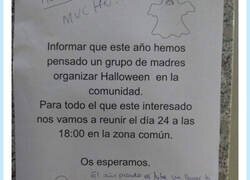 MUCHO!
Informar que este año hemos
pensado un grupo de madres
organizar Halloween en la
comunidad.
Para todo el que este interesado
nos vamos a reunir el día 24 a las
18:00 en la zona común.
Os esperamos.
El año pasado